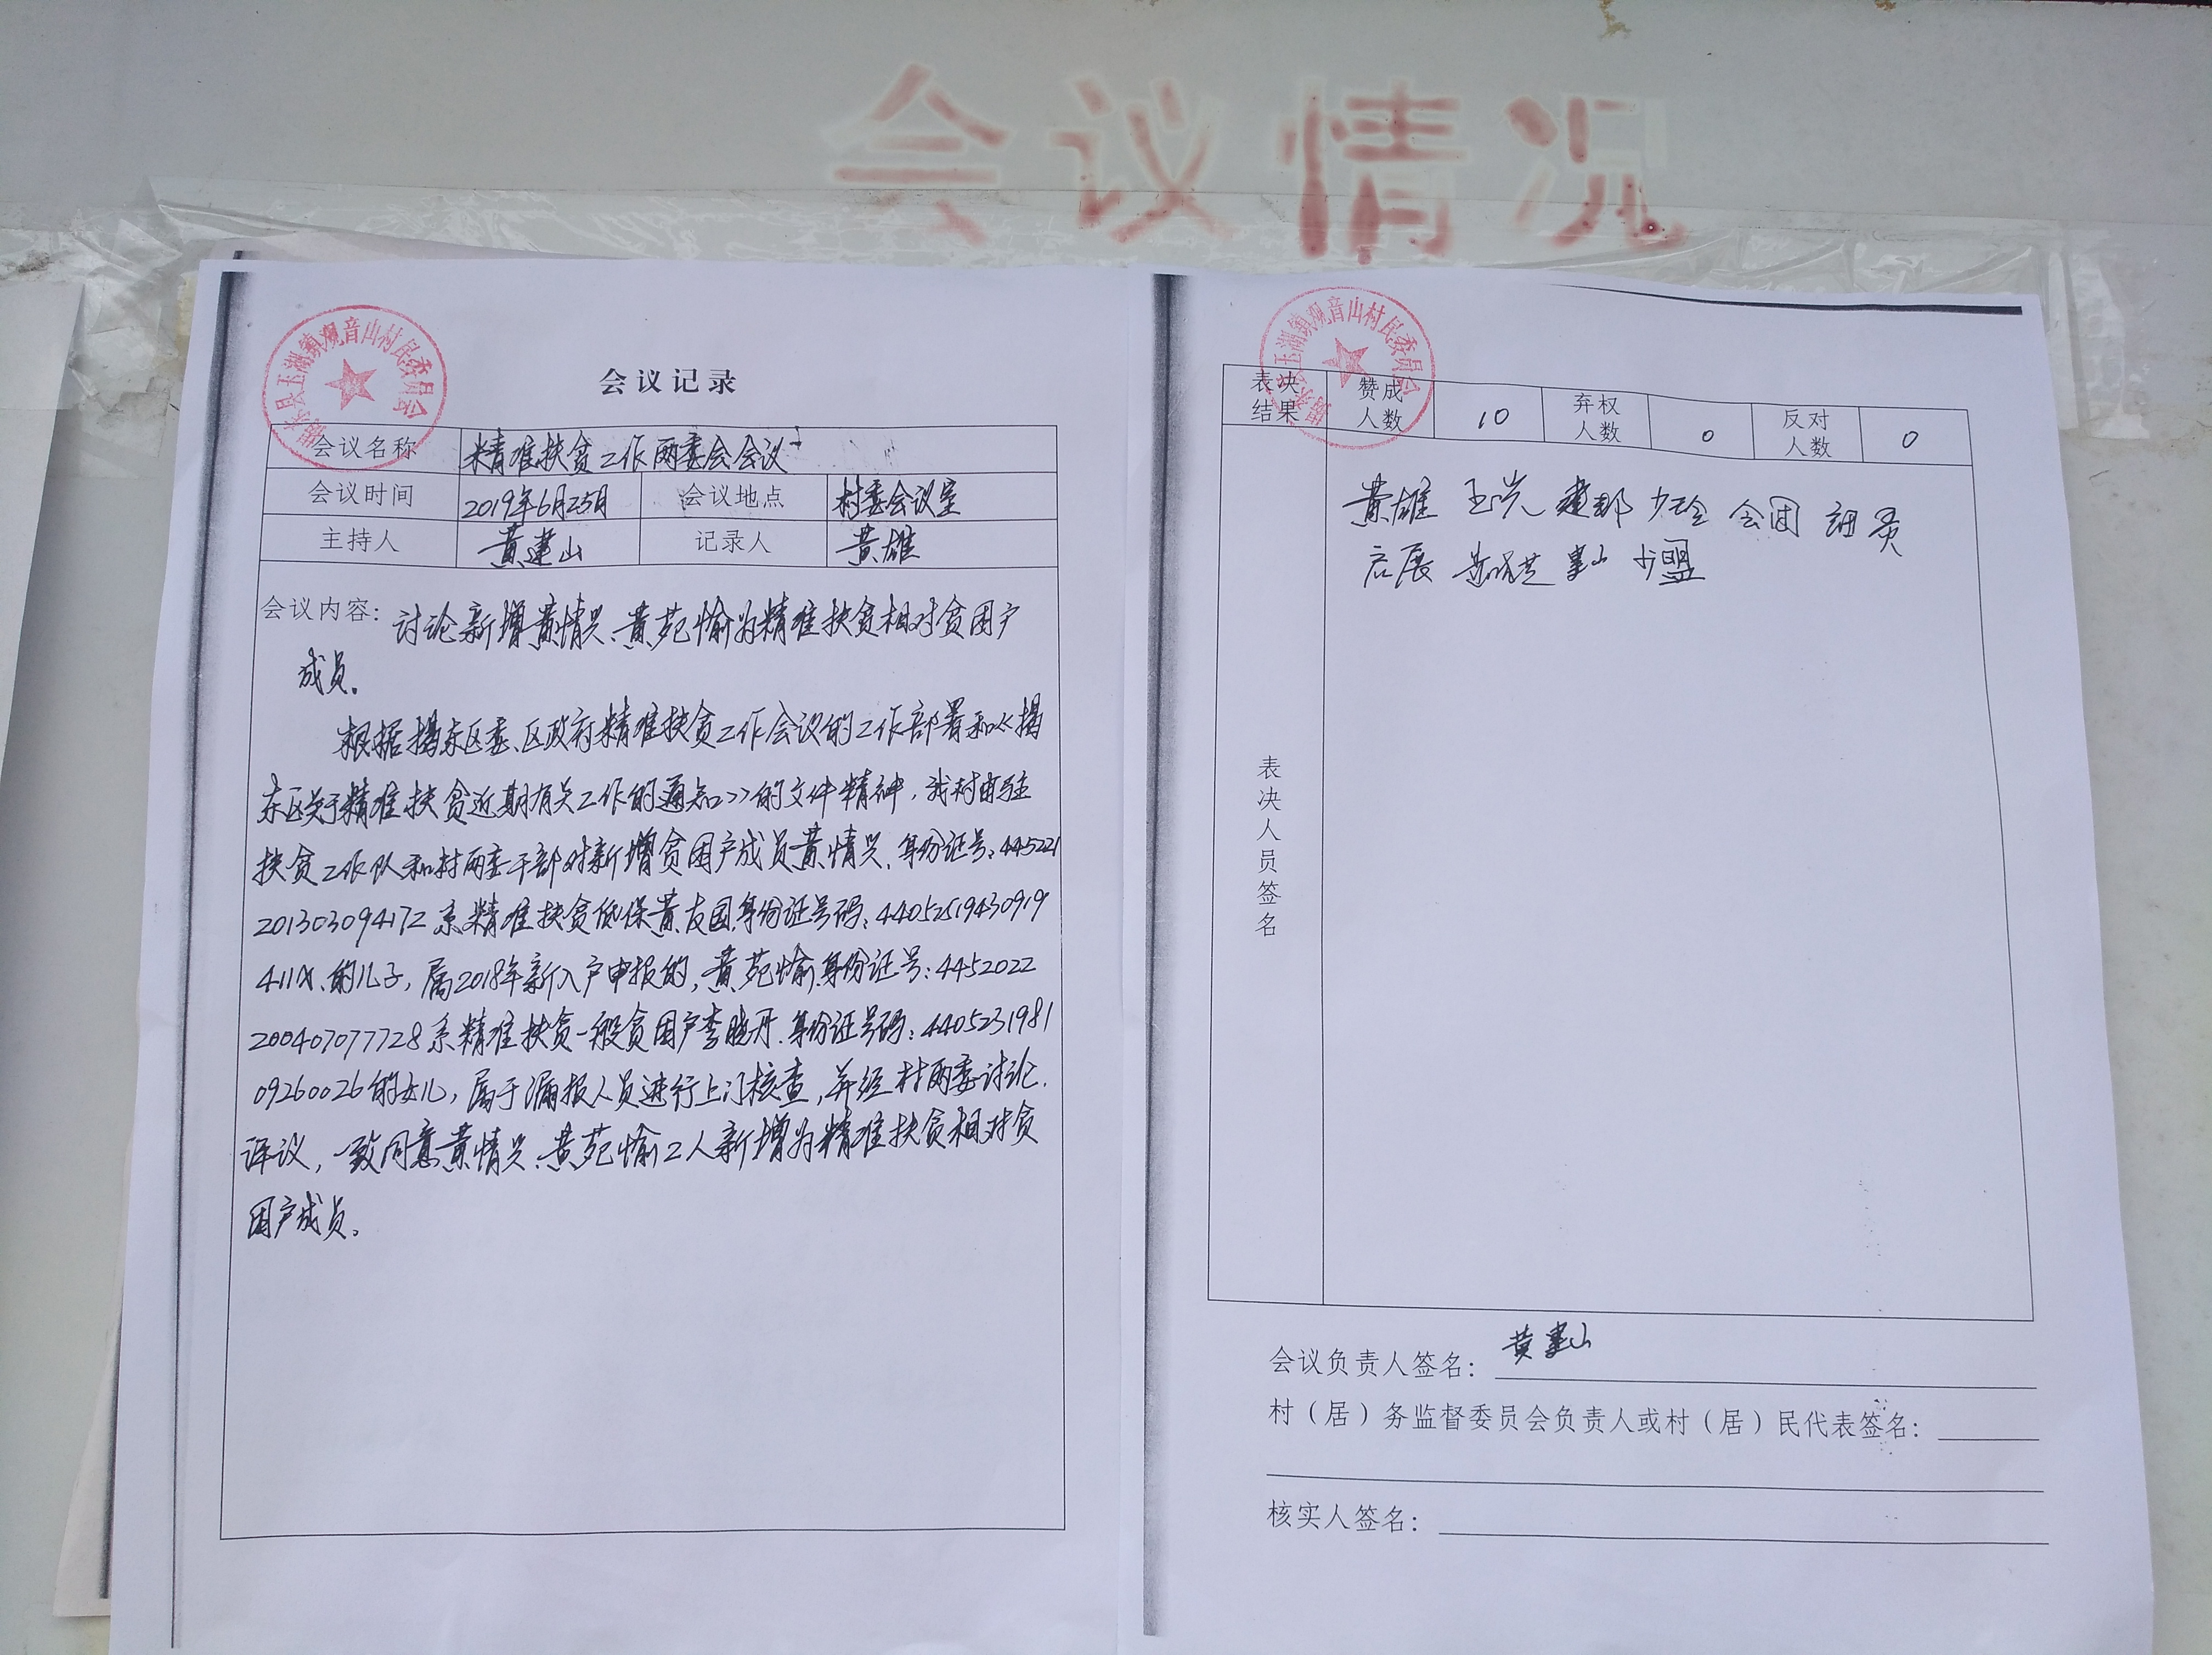 会议情况
揭东县玉湖镇观音山村民委员会
会议记录
会议名称 精准扶贫工作两委会会议
会议时间 2019年6月25日 会议地点 村委会议室
主持人 黄建山 记录人 黄雄
会议内容：讨论新增黄情兴、黄苑愉为精准扶贫相对贫困户
成员。
根据揭东区委、区政府精准扶贫工作会议的工作部署和《揭
东区关于精准扶贫近期有关工作的通知》的文件精神，我村由驻
扶贫工作队和村两委干部对新增贫困户成员黄情兴、身份证号：445221
201303094172系精准扶贫低保黄友园、身份证号码：44052519430919
411X、的儿子，属2018年新入户申报的，黄苑愉、身份证号：4452022
200407077728系精准扶贫一般贫困户李晓丹、身份证号码：4405231981
09260026的女儿，属于漏报人员进行上门核查，并经村两委讨论、
评议，一致同意黄情兴、黄苑愉2人新增为精准扶贫相对贫
困户成员。
揭东县玉湖镇观音山村民委员会
表决结果 赞成人数 10 弃权人数 0 反对人数 0
表决人员签名
黄雄 少玲
启展 建山 少盟
会议负责人签名：黄建山
村（居）务监督委员会负责人或村（居）民代表签名：
核实人签名：